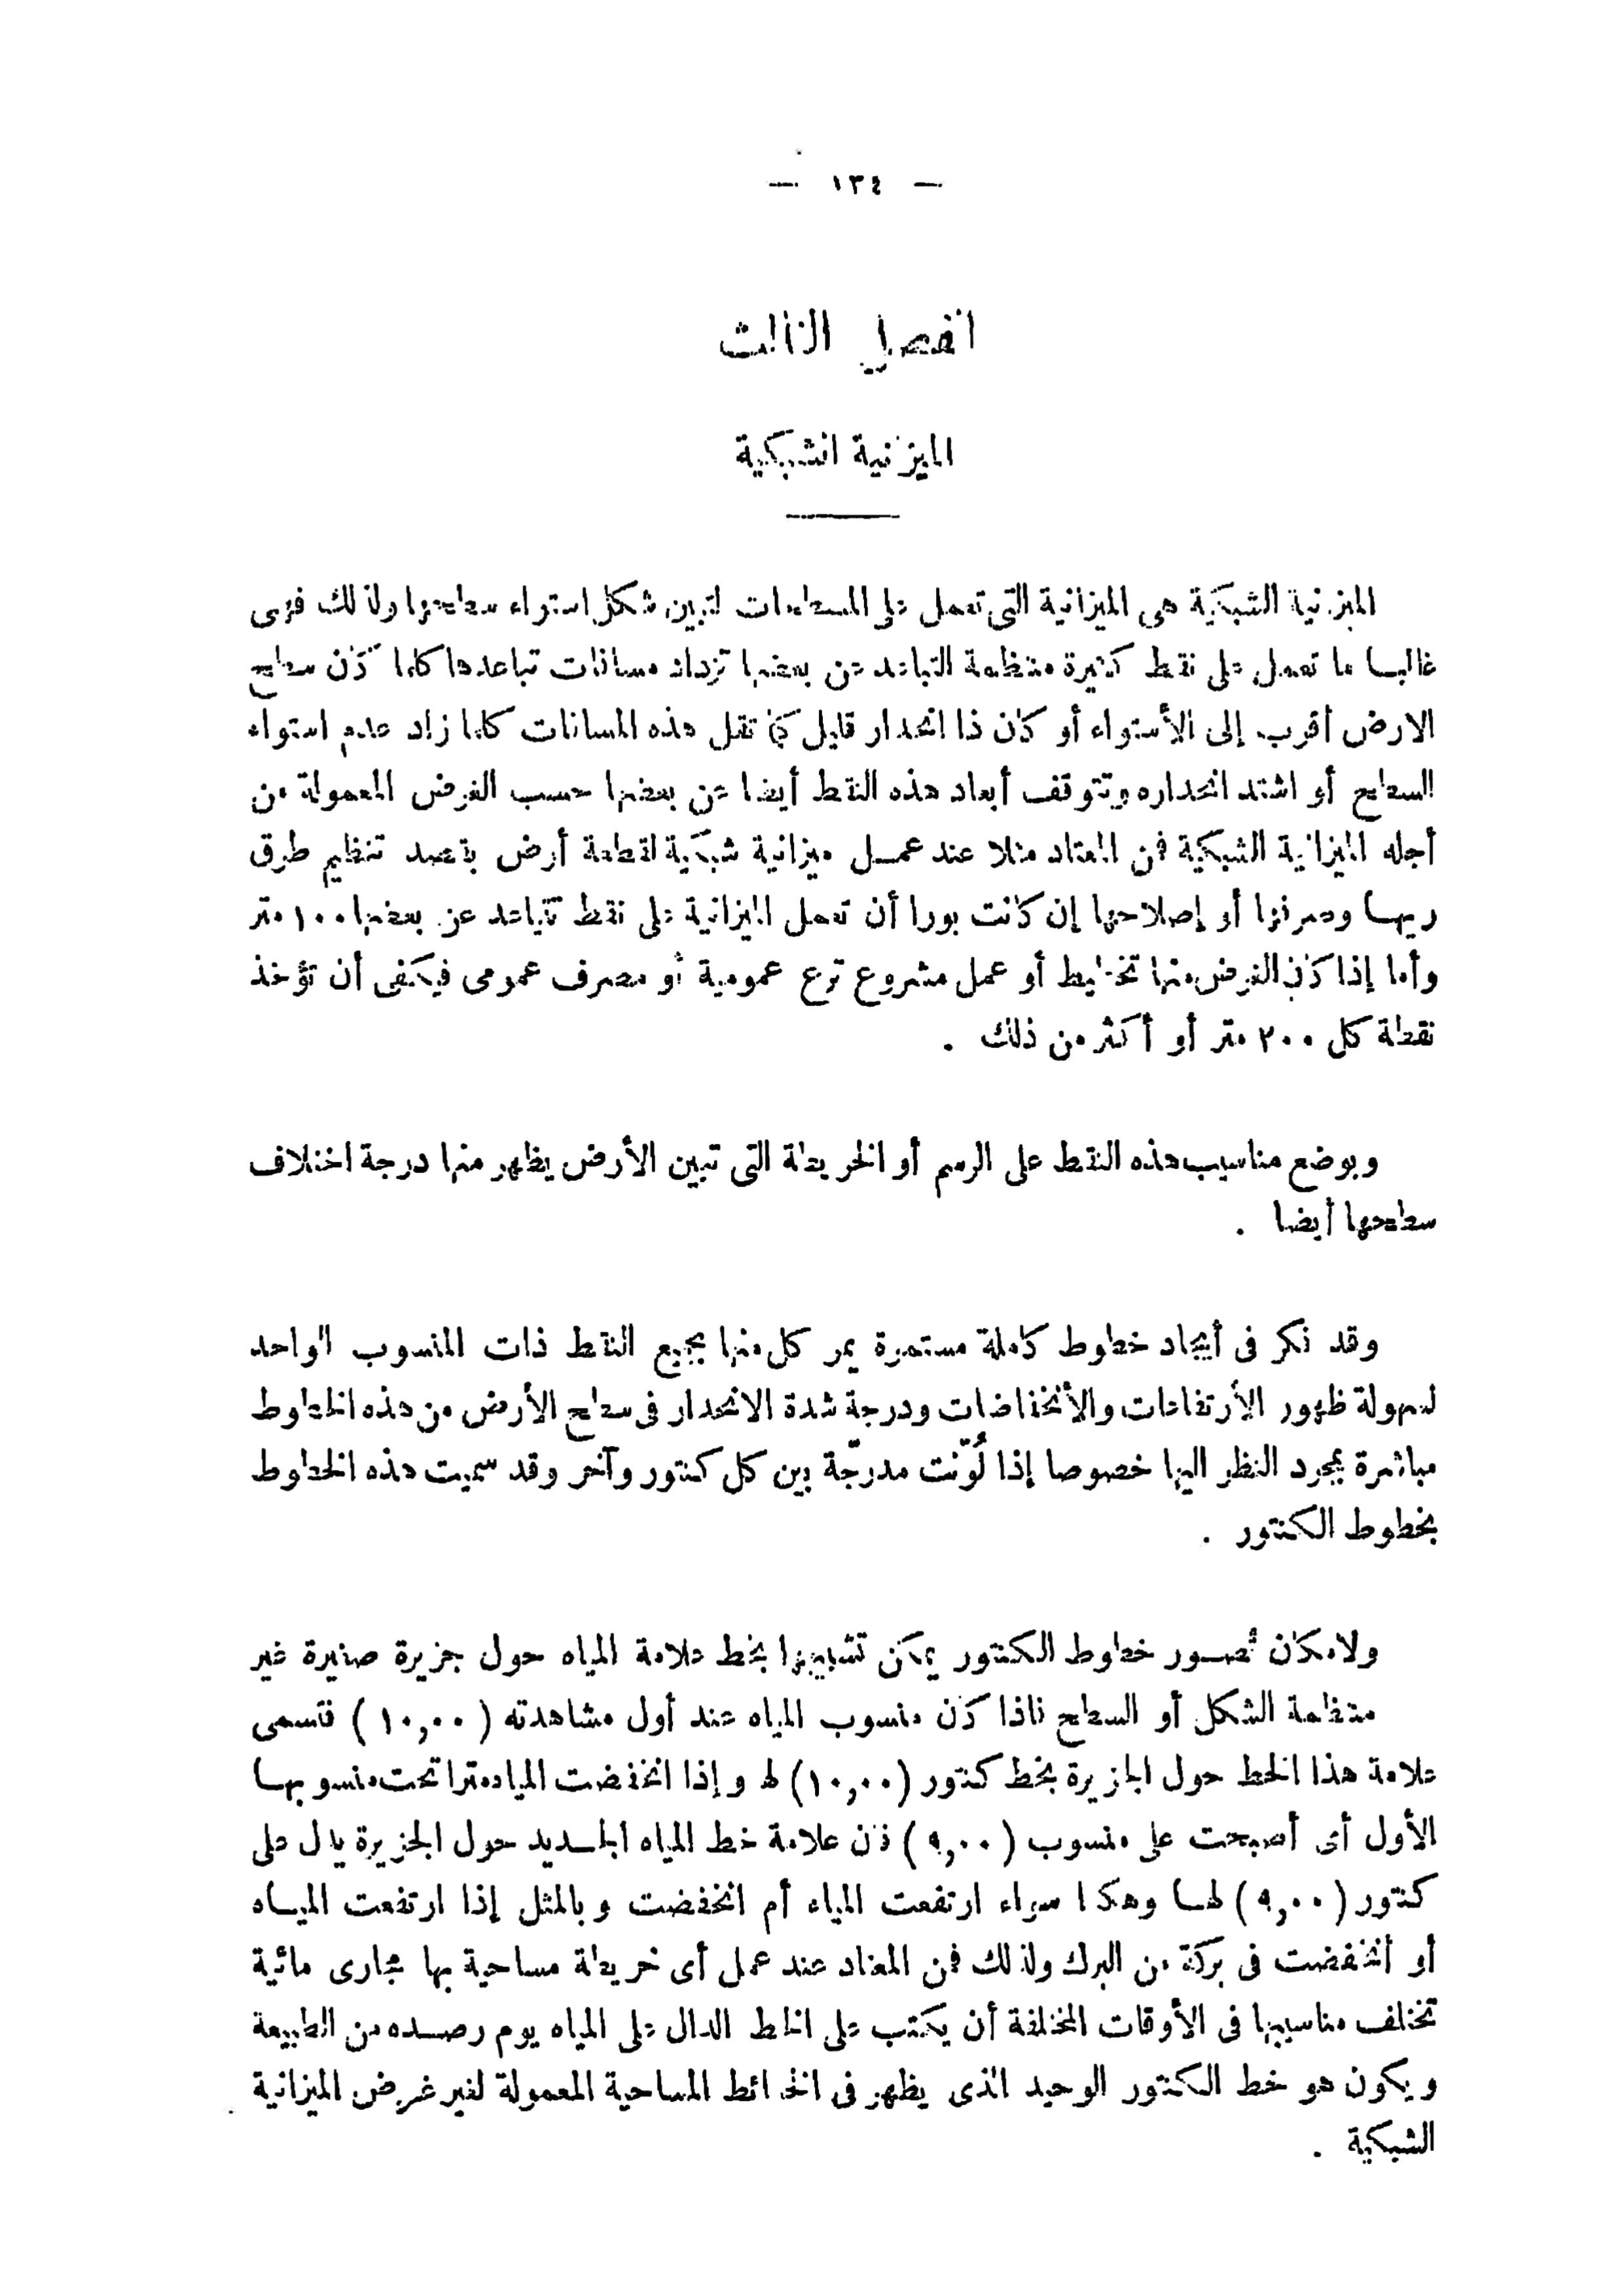 — ١٣٤ —
الفصل الثالث
الميزانية الشبكية
الميزانية الشبكية هى الميزانية التى تعمل على المسطحات لتبين شكل استواء سطحها ولذلك فهى
غالبا ما تعمل على نقط كثيرة منتظمة التباعد عن بعضها تزداد مسافات تباعدها كلما كان سطح
الارض أقرب إلى الأستواء أو كان ذا انحدار قليل كما تقل هذه المسافات كلما زاد عدم استواء
السطح أو اشتد انحداره وتتوقف أبعاد هذه النقط أيضا عن بعضها حسب الغرض المعمولة من
أجله الميزانية الشبكية فمن المعتاد مثلا عند عمل ميزانية شبكية لقطعة أرض بقصد تنظيم طرق
ريها وصرفها أو إصلاحها إن كانت بورا أن تعمل الميزانية على نقط تتباعد عن بعضها ١٠٠ متر
وأما إذا كان الغرض منها تخطيط أو عمل مشروع ترع عمومية أو مصرف عمومى فيكفى أن تؤخذ
نقطة كل ٢٠٠ متر أو أكثر من ذلك .
وبوضع مناسيب هذه النقط على الرسم أو الخريطة التى تبين الأرض يظهر منها درجة اختلاف
سطحها أيضا .
وقد فكر فى أيجاد خطوط كاملة مستمرة يمر كل منها بجميع النقط ذات المنسوب الواحد
لسهولة ظهور الأرتفاعات والأنخفاضات ودرجة شدة الانحدار فى سطح الأرض من هذه الخطوط
مباشرة بمجرد النظر اليها خصوصا إذا لُوّنت مدرجّة بين كل كنتور وآخر وقد سميت هذه الخطوط
بخطوط الكنتور .
ولامكان تصور خطوط الكنتور يمكن تشبيهها بخط علامة المياه حول جزيرة صغيرة غير
منتظمة الشكل أو السطح فاذا كان منسوب المياه عند أول مشاهدته (١٠,٠٠) فتسمى
علامة هذا الخط حول الجزيرة بخط كنتور (١٠,٠٠) لها وإذا انخفضت المياه مترا تحت منسوبها
الأول أى أصبحت على منسوب (٩,٠٠) فان علامة خط المياه الجديد حول الجزيرة يدل على
كنتور (٩,٠٠) لها وهكذا سواء ارتفعت المياه أم انخفضت وبالمثل إذا ارتفعت المياه
أو أنخفضت فى بركة من البرك ولذلك فمن المعتاد عند عمل أى خريطة مساحية بها مجارى مائية
تختلف مناسيبها فى الأوقات المختلفة أن يكتب على الخط الدال على المياه يوم رصده من الطبيعة
ويكون هو خط الكنتور الوحيد الذى يظهر فى الخرائط المساحية المعمولة لغير غرض الميزانية
الشبكية .